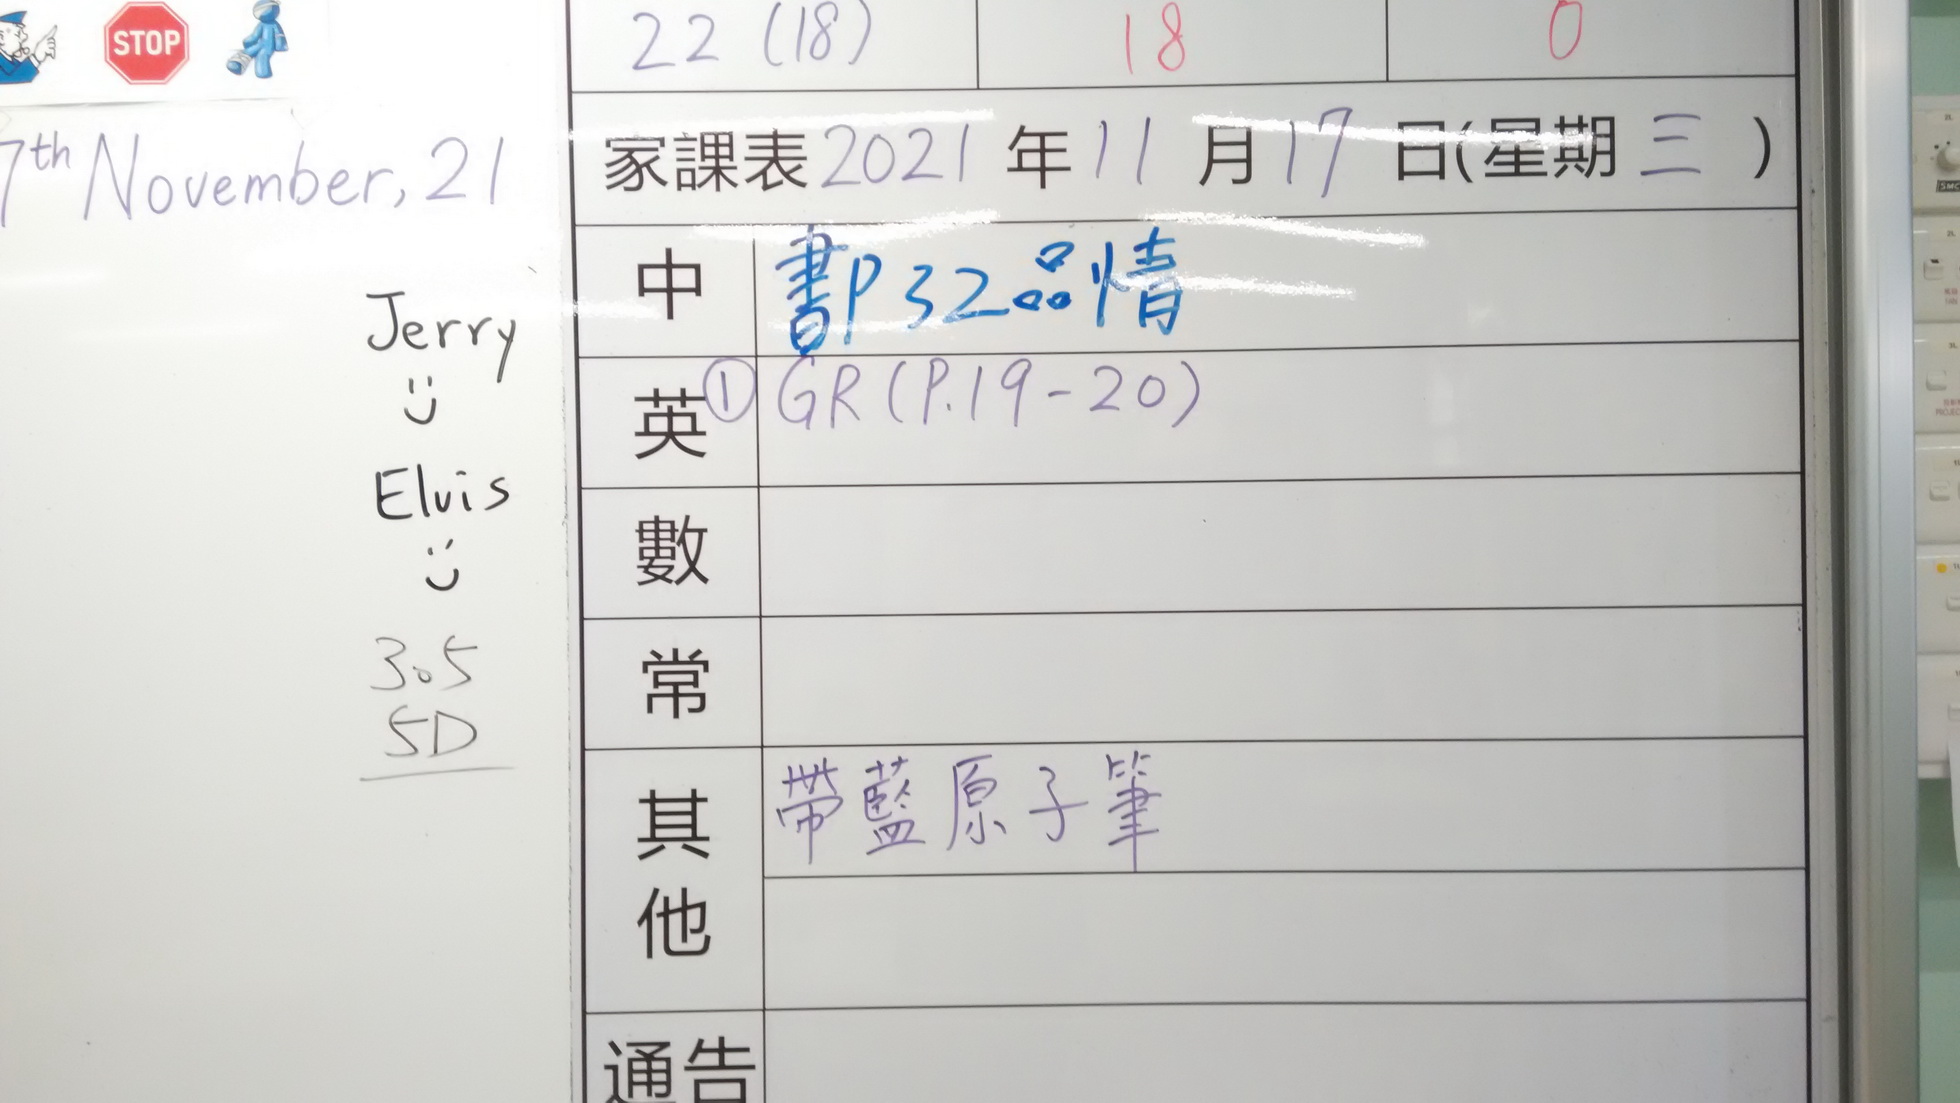 STOP
22 (18) 18 0
7th November, 21
家課表 2021 年 11 月 17 日(星期 三 )
中 書P32品情
Jerry
英 ① GR (P.19-20)
Elvis
數
3.5
5D
常
其他 帶藍原子筆
通告